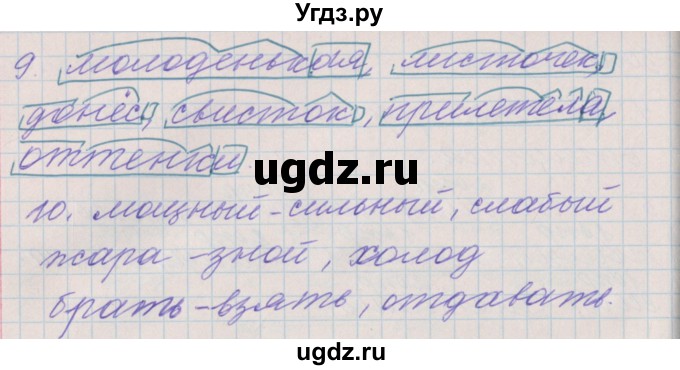 Угдз.ру
9. молоденькая, листочек,
донёс, свисток, прилетела,
оттенки.
ugdz.ru
10. мощный - сильный, слабый
жара - зной, холод
брать - взять, отдавать.
ugdz.ru